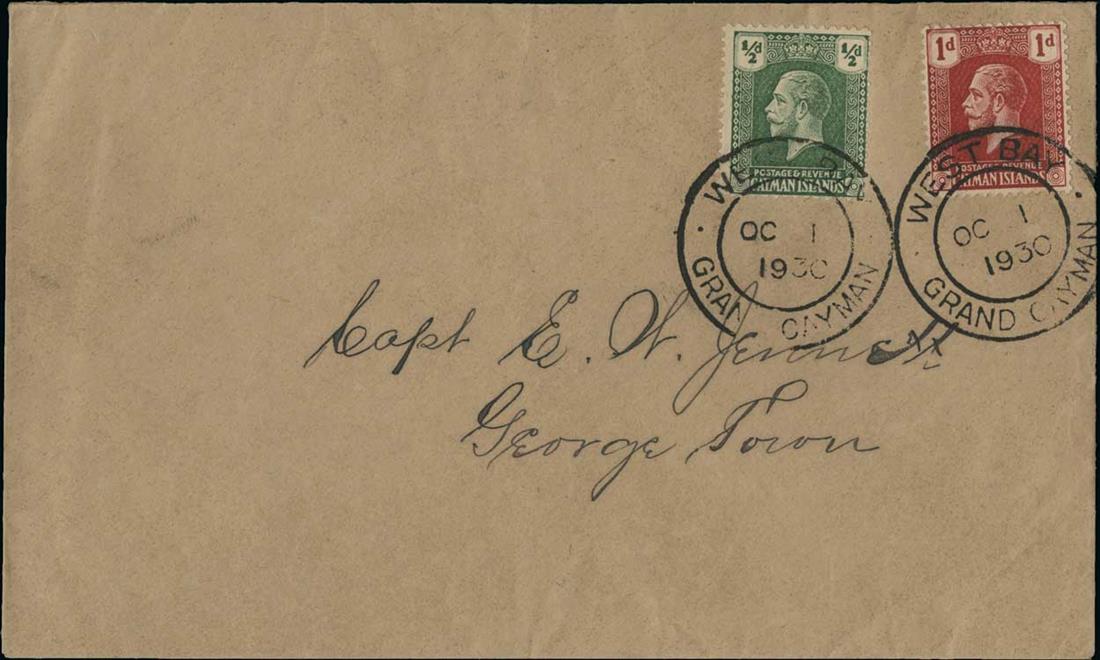 ½d ½d
POSTAGE & REVENUE
CAYMAN ISLANDS
1d 1d
POSTAGE & REVENUE
CAYMAN ISLANDS
WEST BAY
OC 1
1930
GRAND CAYMAN
WEST BAY
OC 1
1930
GRAND CAYMAN
Capt E. W. Jennett
George Town